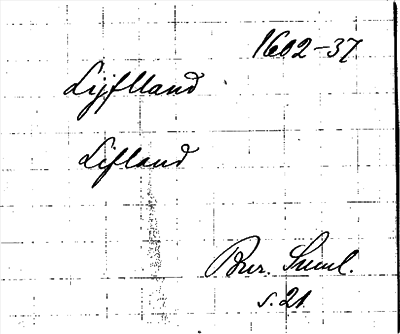 1602-37
Lijflland
Lifland
Bur. Suml.
s. 21